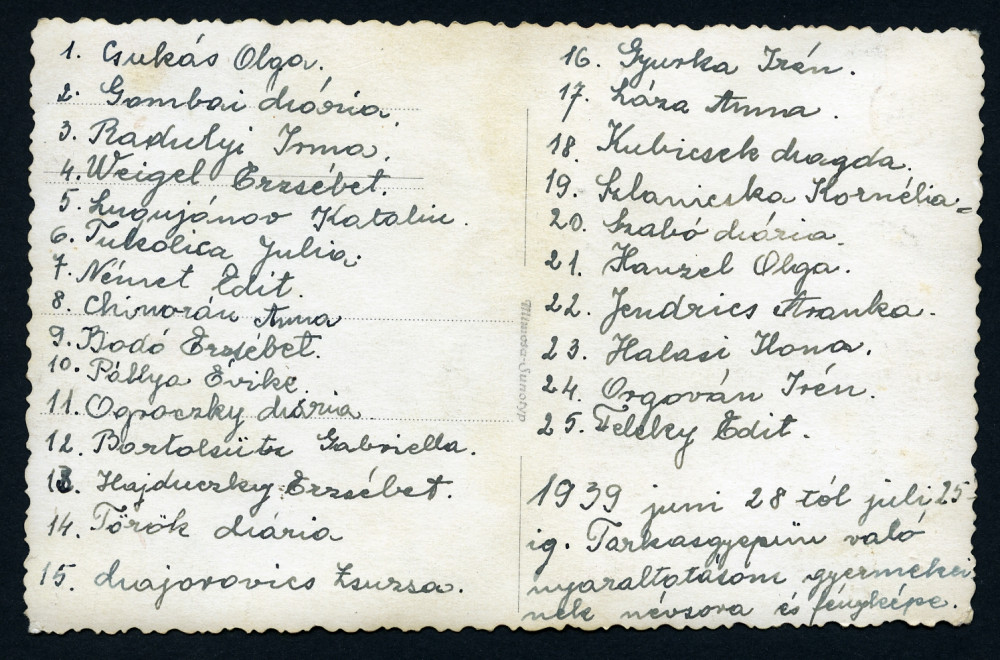 1. Csukás Olga.
2. Gombai Mária.
3. Radulyi Irma.
4. Weigel Erzsébet.
5. Lugujánov Katalin.
6. Tukolica Julia.
7. Német Edit.
8. Chinorán Anna
9. Bodó Erzsébet.
10. Pállya Évike.
11. Ogroczky Mária
12. Bartolsüts Gabriella.
13. Hajduczky Erzsébet.
14. Török Mária
15. Majorovics Zsuzsa.
16. Gyurka Irén.
17. Láza Anna.
18. Kubicsek Magda.
19. Szlanicska Kornélia
20. Szabó Mária.
21. Hanzel Olga.
22. Jendrics Aranka.
23. Halasi Ilona.
24. Orgován Irén.
25. Teleky Edit.
1939 juni 28 tól juli 25-
ig. Tarkasgyepün való
nyaraltatásom gyermekei
nek névsora és fényképe.
Mimosa-Sunotyp